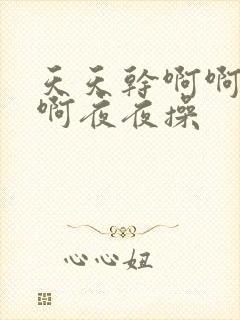 天天幹啊啊
啊夜夜操
心心妞